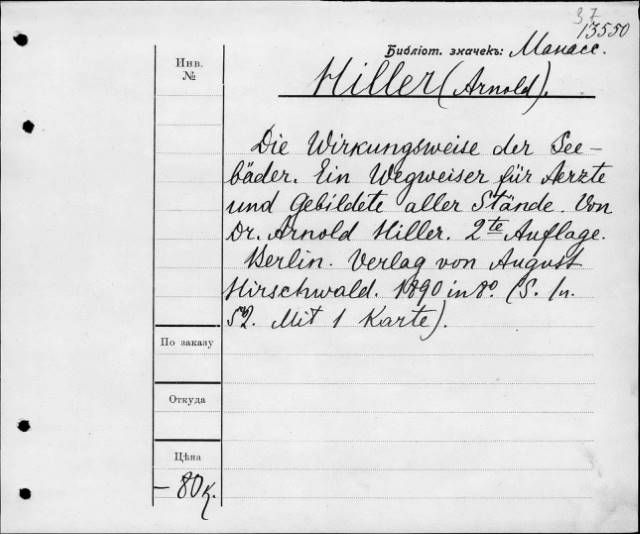 37
13550
Библіот. значекъ: Манасс.
Инв.
№
Hiller (Arnold).
Die Wirkungsweise der See-
bäder. Ein Wegweiser für Aerzte
und Gebildete aller Stände. Von
Dr. Arnold Hiller. 2te Auflage.
Berlin. Verlag von August
Hirschwald. 1890 in 8º. (S. In.
52. Mit 1 Karte).
По заказу
Откуда
Цѣна
– 80 к.